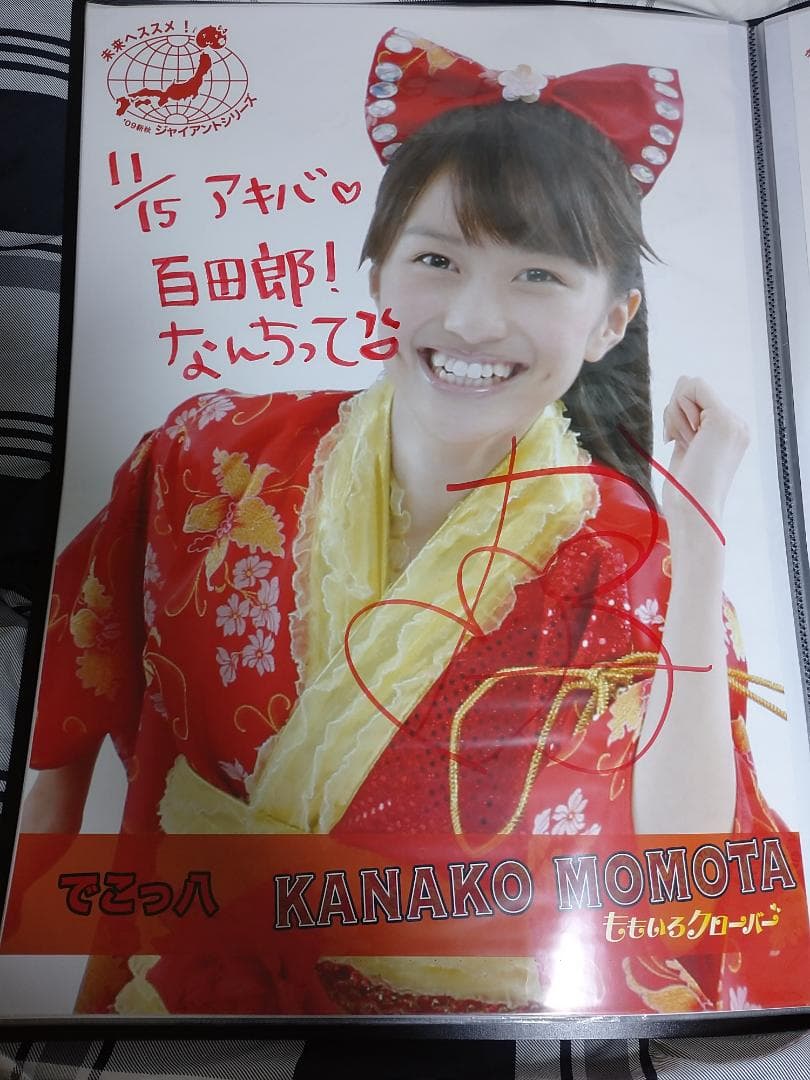 未来へススメ!
'09新秋 ジャイアントシリーズ
11/15 アキバ♡
百田郎!
なんちって
でこっ八
KANAKO MOMOTA
ももいろクローバー